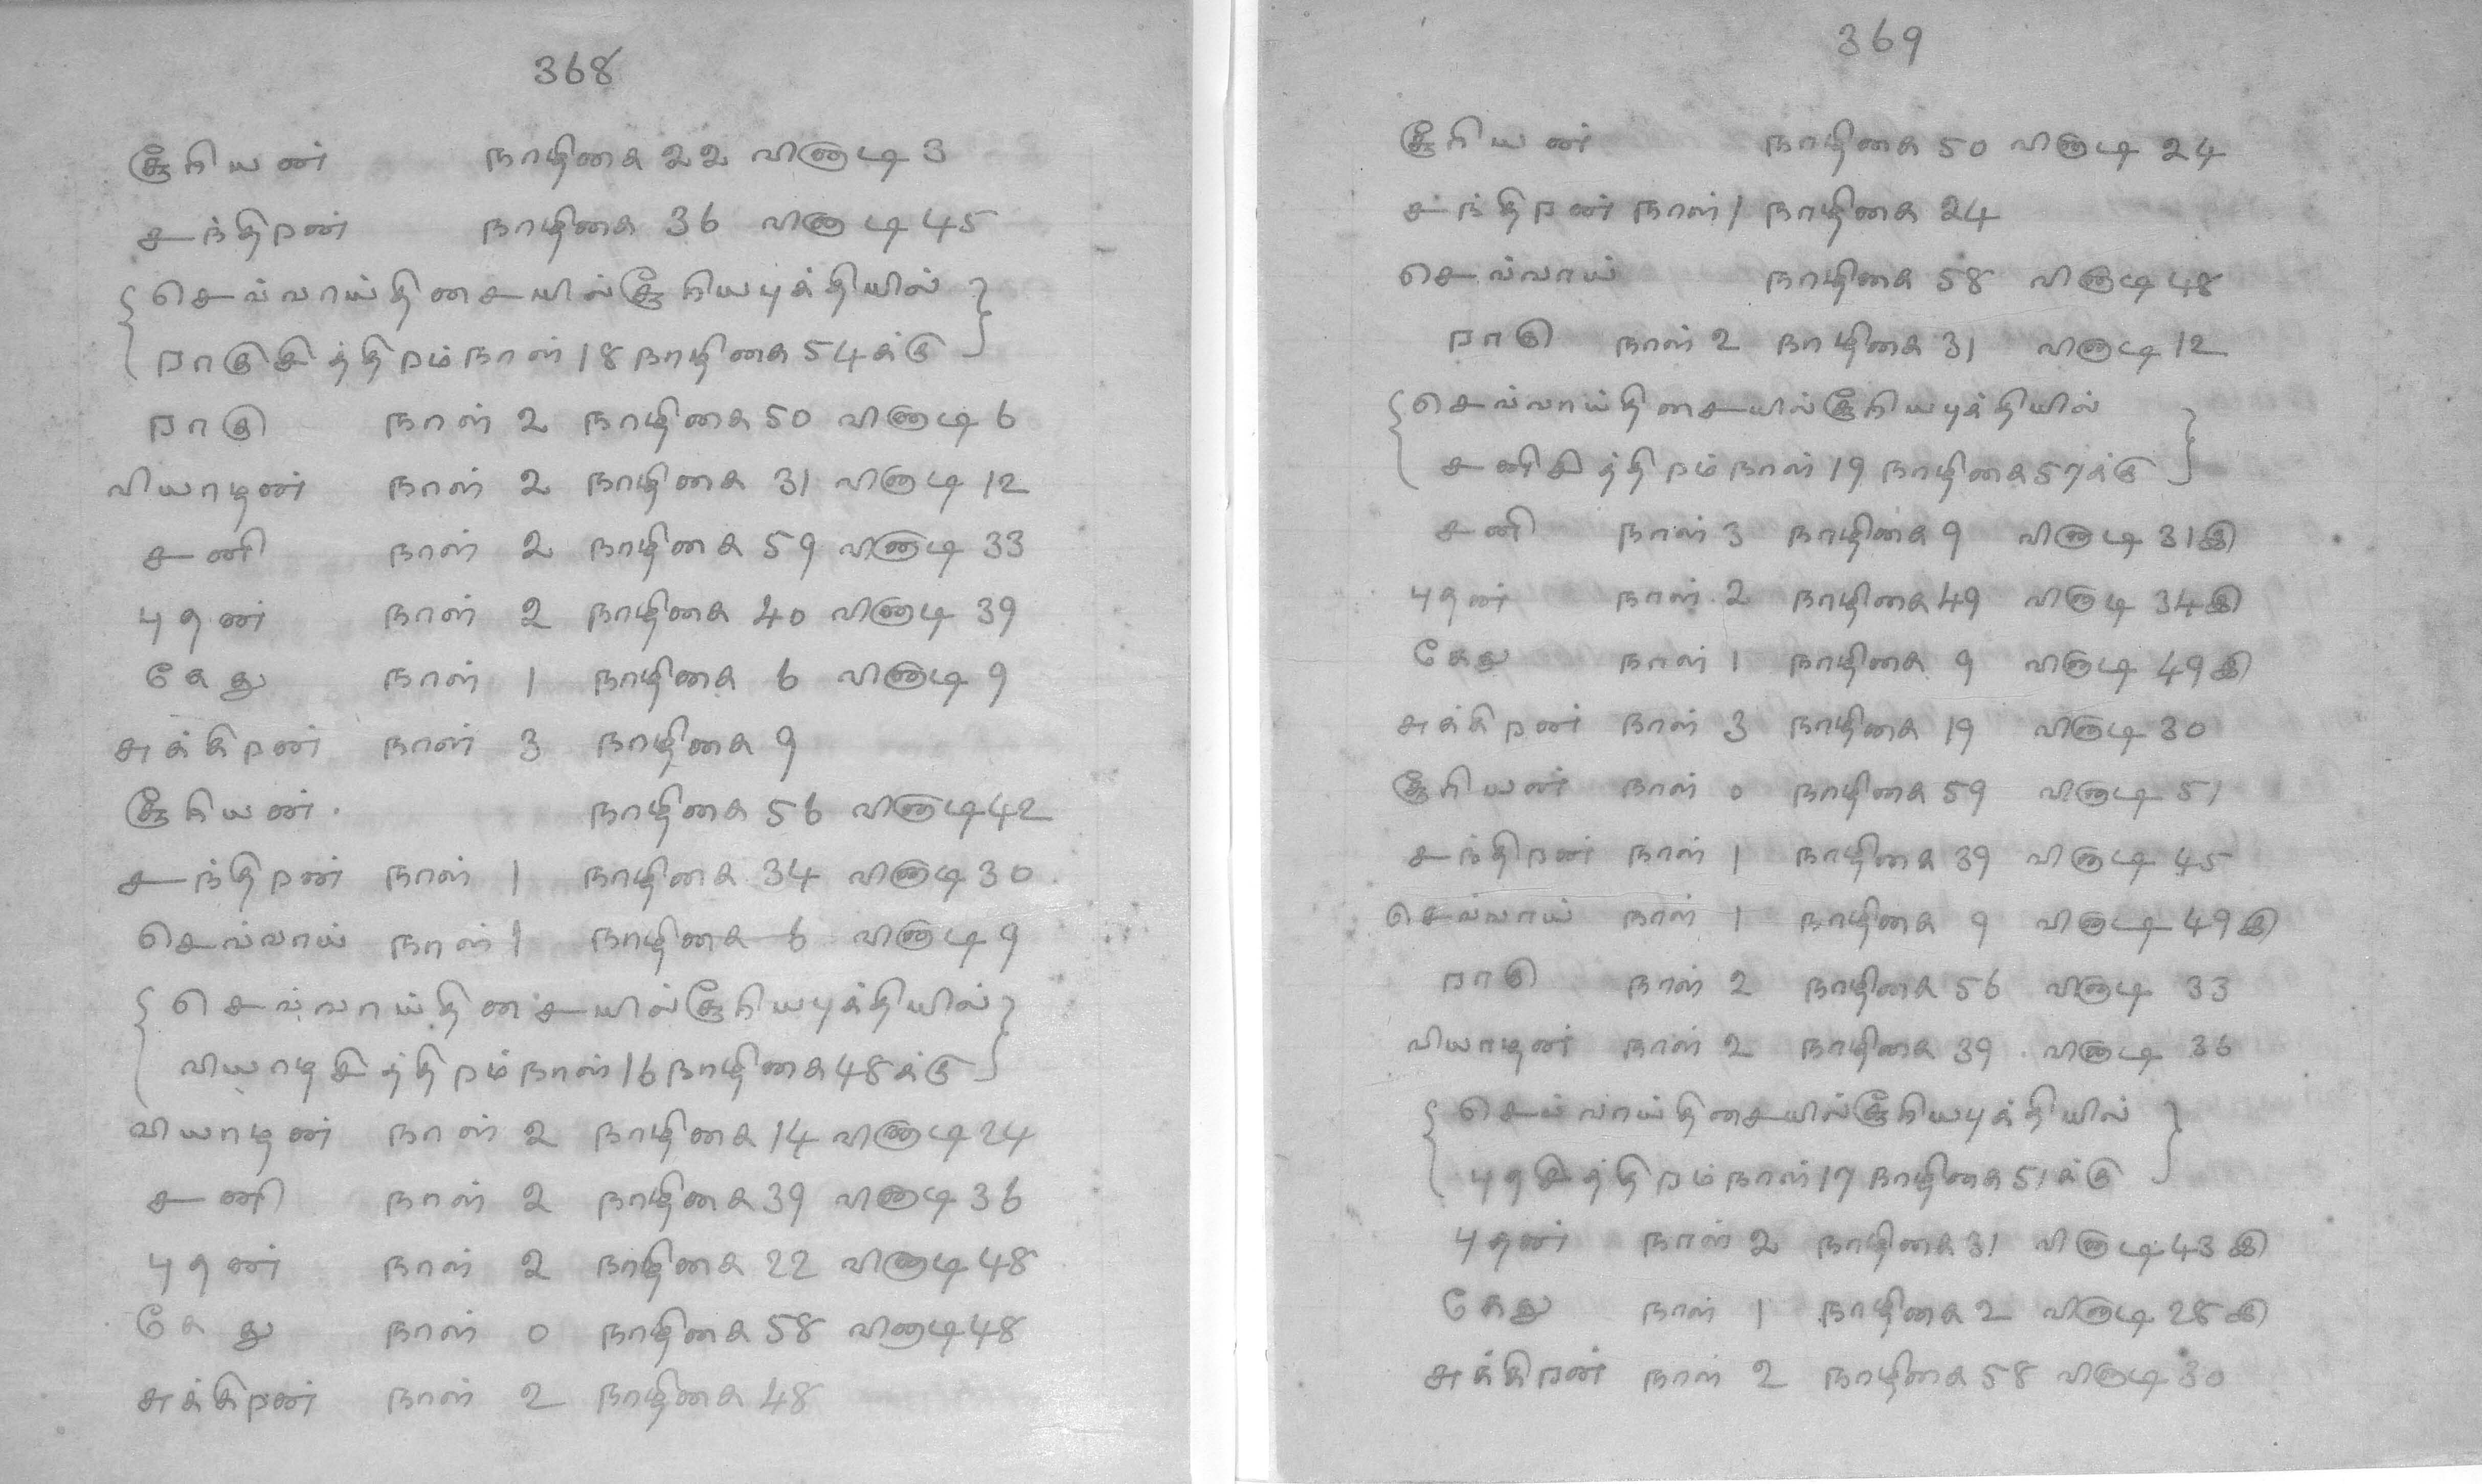 368
சூரியன் நாழிகை 22 வினாடி 3
சந்திரன் நாழிகை 36 வினாடி 45
{செவ்வாய்திசையில்சூரியபுக்தியில்}
{ராகுசித்திரம்நாள் 18 நாழிகை 54க்கு}
ராகு நாள் 2 நாழிகை 50 வினாடி 6
வியாழன் நாள் 2 நாழிகை 31 வினாடி 12
சனி நாள் 2 நாழிகை 59 வினாடி 33
புதன் நாள் 2 நாழிகை 40 வினாடி 39
கேது நாள் 1 நாழிகை 6 வினாடி 9
சுக்கிரன் நாள் 3 நாழிகை 9
சூரியன் நாழிகை 56 வினாடி 42
சந்திரன் நாள் 1 நாழிகை 34 வினாடி 30
செவ்வாய் நாள் 1 நாழிகை 6 வினாடி 9
{செவ்வாய்திசையில்சூரியபுக்தியில்}
{வியாழசித்திரம்நாள் 16 நாழிகை 48க்கு}
வியாழன் நாள் 2 நாழிகை 14 வினாடி 24
சனி நாள் 2 நாழிகை 39 வினாடி 36
புதன் நாள் 2 நாழிகை 22 வினாடி 48
கேது நாள் 0 நாழிகை 58 வினாடி 48
சுக்கிரன் நாள் 2 நாழிகை 48
369
சூரியன் நாழிகை 50 வினாடி 24
சந்திரன் நாள் 1 நாழிகை 24
செவ்வாய் நாழிகை 58 வினாடி 48
ராகு நாள் 2 நாழிகை 31 வினாடி 12
{செவ்வாய்திசையில்சூரியபுக்தியில்}
{சனிசித்திரம்நாள் 19 நாழிகை 57க்கு}
சனி நாள் 3 நாழிகை 9 வினாடி 31இ
புதன் நாள் 2 நாழிகை 49 வினாடி 34இ
கேது நாள் 1 நாழிகை 9 வினாடி 49இ
சுக்கிரன் நாள் 3 நாழிகை 19 வினாடி 30
சூரியன் நாள் 0 நாழிகை 59 வினாடி 51
சந்திரன் நாள் 1 நாழிகை 39 வினாடி 45
செவ்வாய் நாள் 1 நாழிகை 9 வினாடி 49இ
ராகு நாள் 2 நாழிகை 56 வினாடி 33
வியாழன் நாள் 2 நாழிகை 39 வினாடி 36
{செவ்வாய்திசையில்சூரியபுக்தியில்}
{புதசித்திரம்நாள் 17 நாழிகை 51க்கு}
புதன் நாள் 2 நாழிகை 31 வினாடி 43இ
கேது நாள் 1 நாழிகை 2 வினாடி 28இ
சுக்கிரன் நாள் 2 நாழிகை 58 வினாடி 30